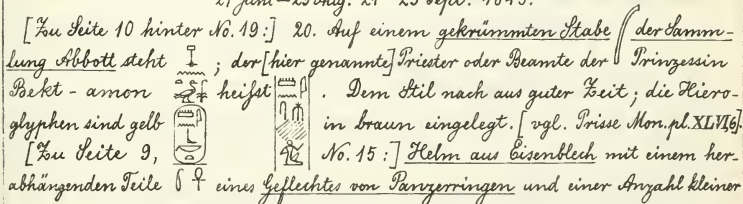 21 Juni – 25 Aug. 21 – 25 Sept. 1843.
[Zu Seite 10 hinter No. 19:] 20. Auf einem gekrümmten Stabe der Samm-
lung Abbott steht ; der [hier genannte] Priester oder Beamte der Prinzessin
Bekt-amon heißt . Dem Stil nach aus guter Zeit; die Hiero-
glyphen sind gelb in braun eingelegt. [vgl. Prisse Mon. pl. XLVI,6].
[Zu Seite 9, No. 15:] Helm aus Eisenblech mit einem her-
abhängenden Teile eines Geflechtes von Panzerringen und einer Anzahl kleiner